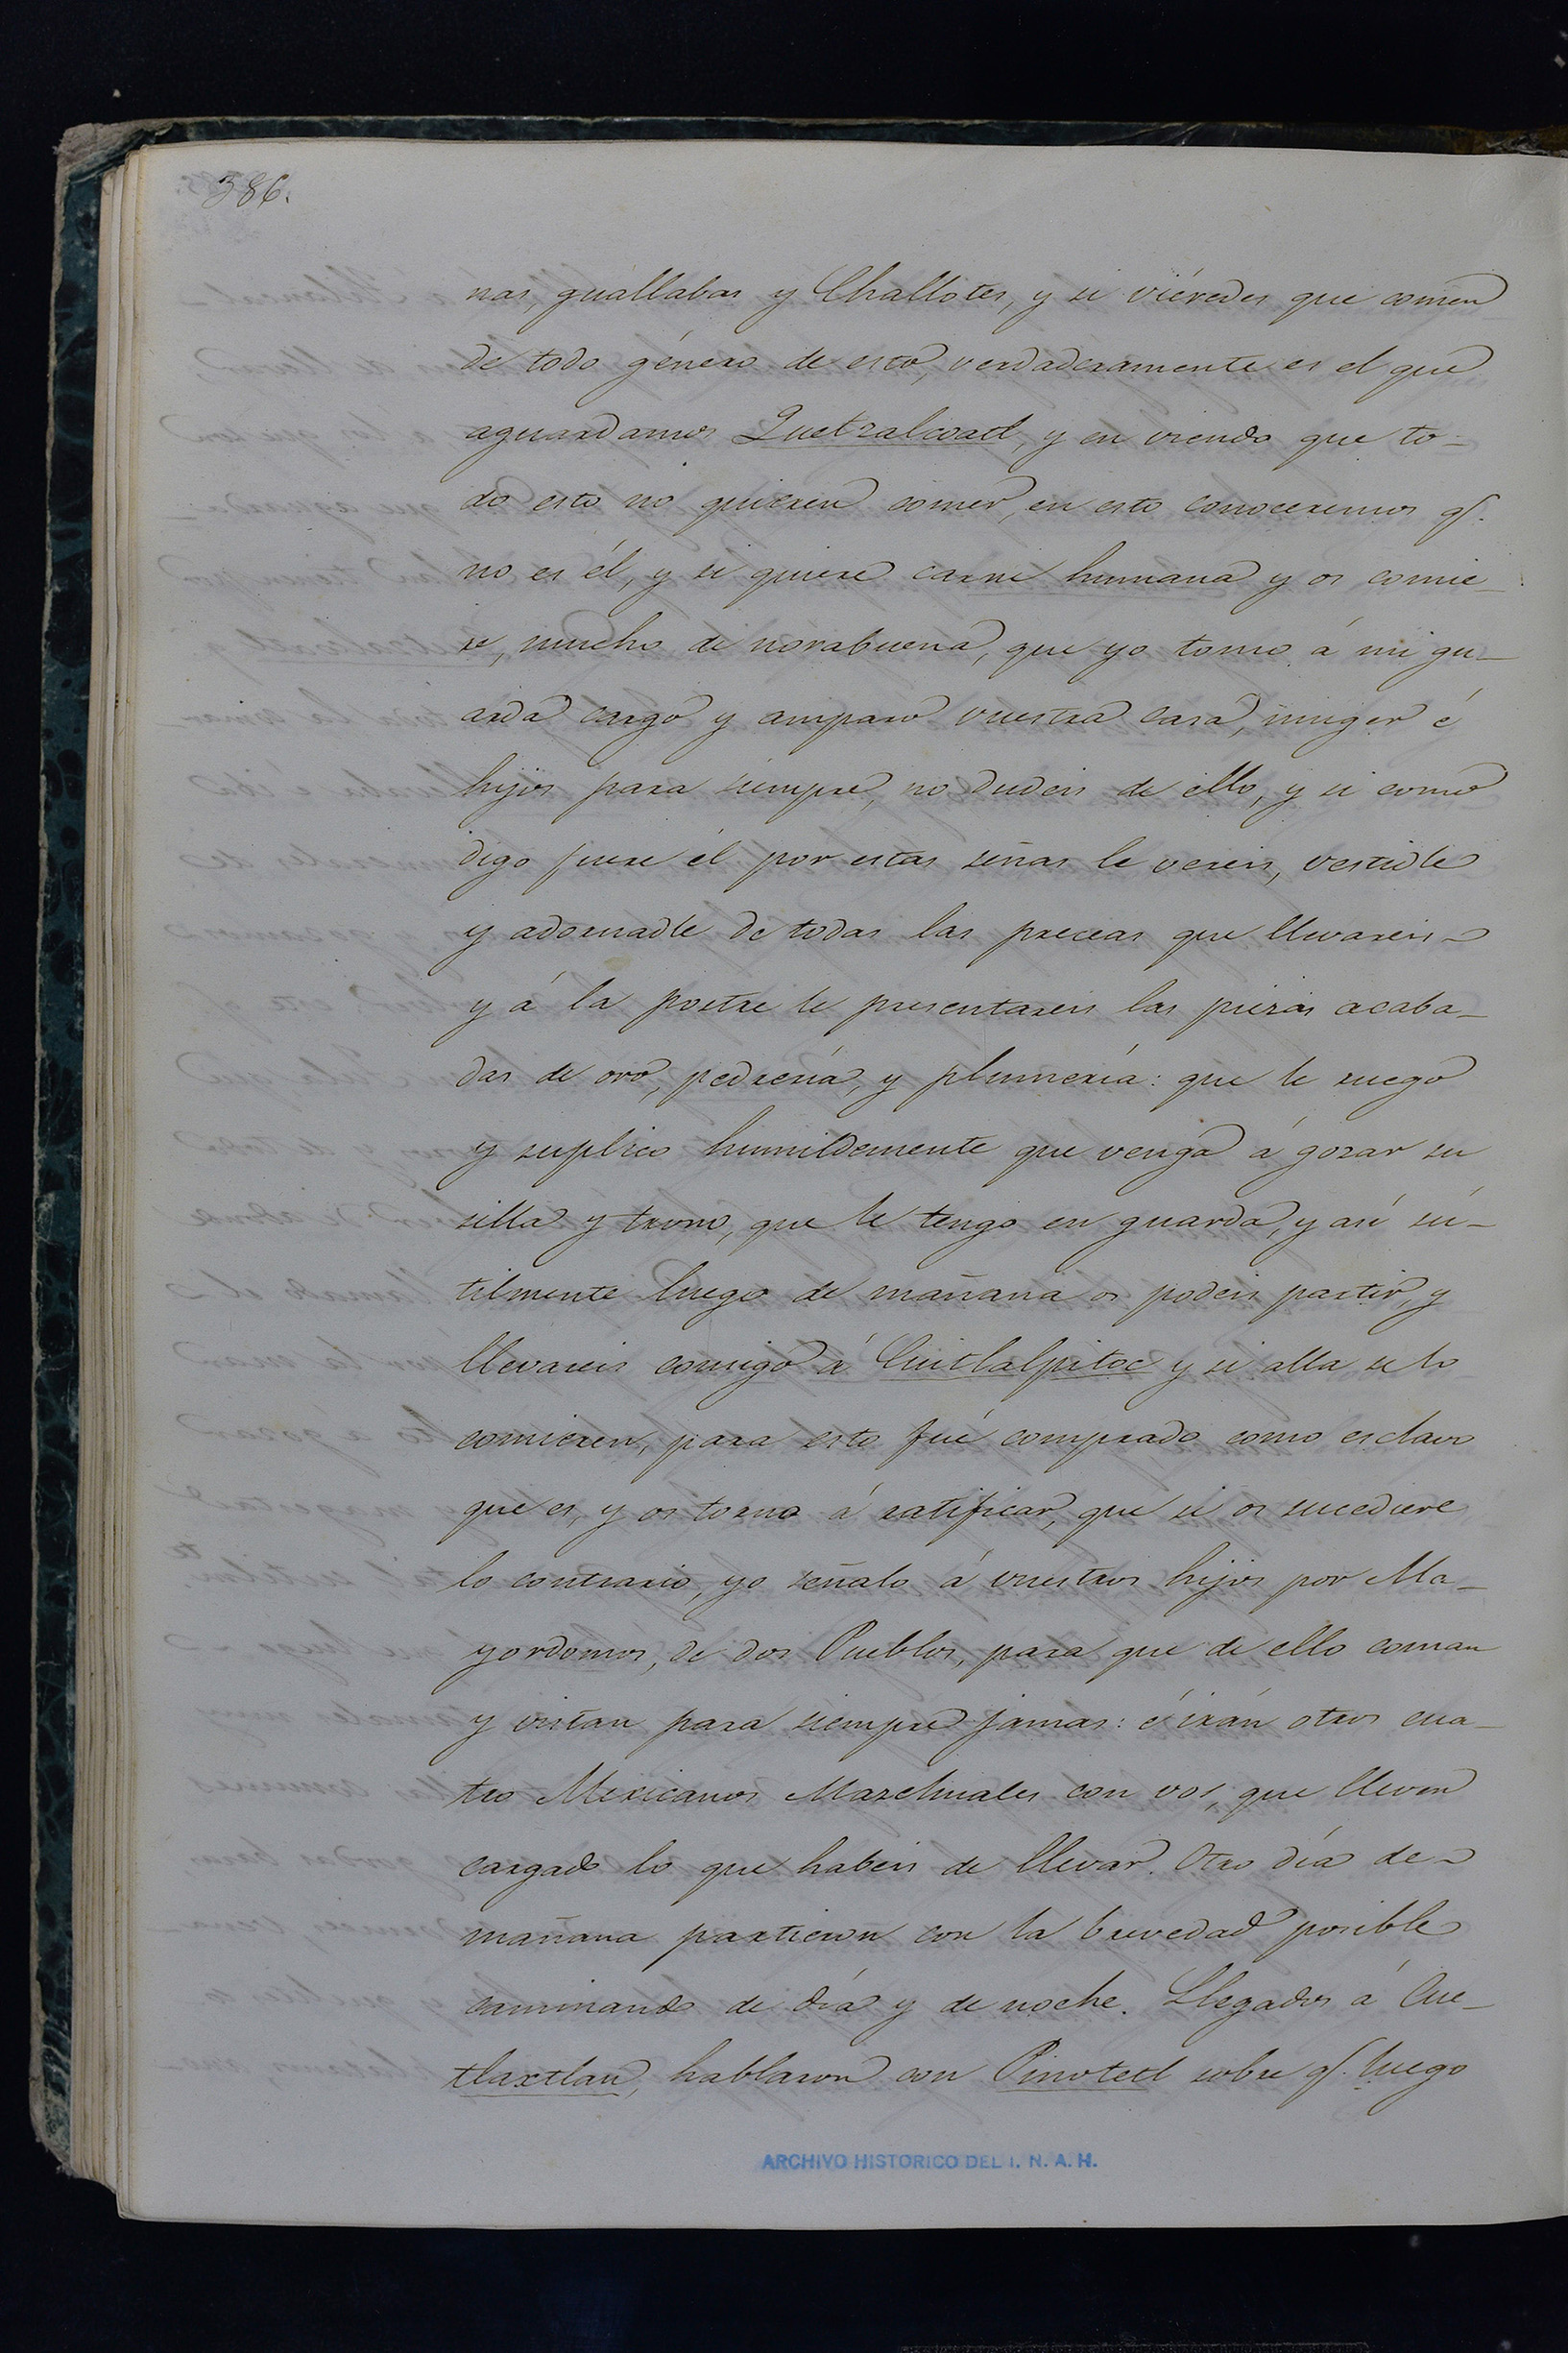 386.
nas, guallabas y Challotes, y si viéredes que comen
de todo género de esto, verdaderamente es el que
aguardamos Quetzalcoatl, y en viendo que to-
do esto no quieren comer, en esto conoceremos q.
no es él, y si quiere carne humana y os comie-
se, mucho de norabuena, que yo tomo á mi gu-
arda cargo y amparo vuestra casa, muger é
hijos para siempre, no dudeis de ello, y si como
digo fuere él por estas señas le vereis, vestidle
y adornadle de todas las preceas que llevareis
y á la postre le presentareis las piezas acaba-
das de oro, pedrería, y plumería: que le ruego
y suplico humildemente que venga á gozar su
silla y trono, que le tengo en guarda, y asi su-
tilmente luego de mañana os podeis partir, y
llevareis consigo á Cuitlalpitoc y si alla se lo
comieren, para esto fué comprado como esclavo
que es, y os torno á ratificar, que si os sucediere
lo contrario, yo señalo á vuestros hijos por Ma-
yordomos, de dos Pueblos, para que de ello coman
y vistan para siempre jamas: é irán otros cua-
tro Mexicanos Mazehuales con vos, que lleven
cargado lo que habeis de llevar. Otro día de
mañana partieron con la brevedad posible
caminando de día y de noche. Llegados á Cue-
tlaxtlan, hablaron con Pinotetl sobre q. luego
ARCHIVO HISTORICO DEL I. N. A. H.